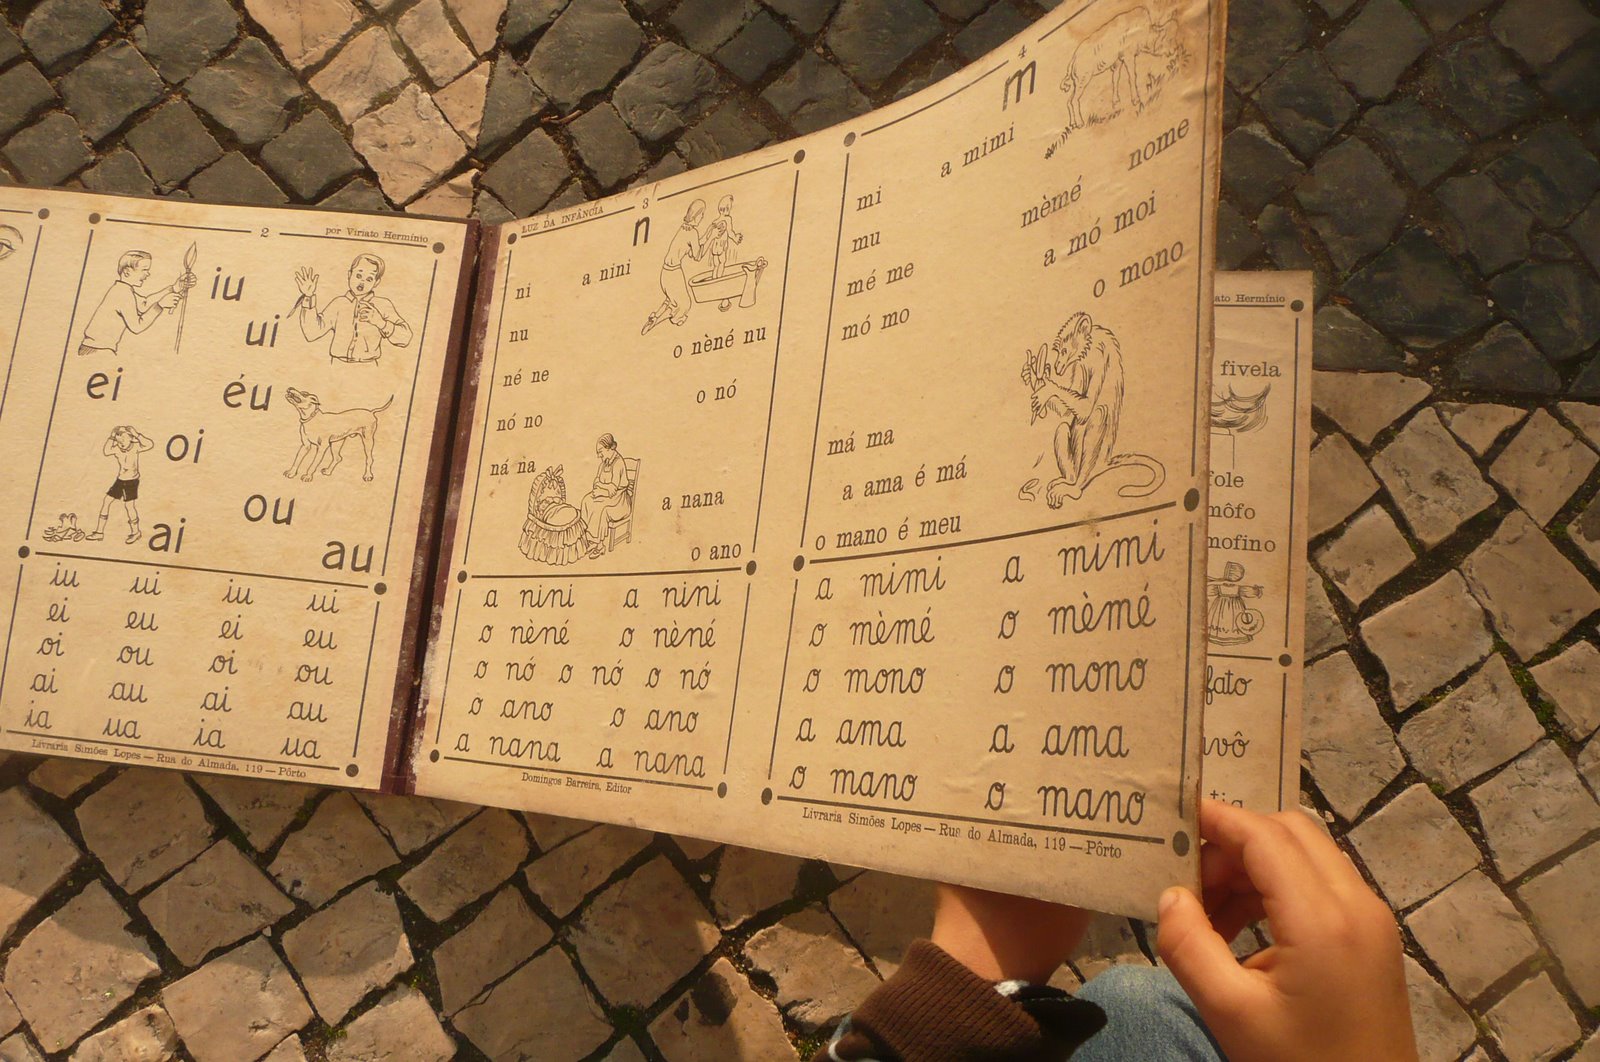 2 por Viriato Hermínio
iu
ui
ei éu
oi
ou
ai
au
iu ui iu ui
ei eu ei eu
oi ou oi ou
ai au ai au
ia ua ia ua
Livraria Simões Lopes — Rua do Almada, 119 — Pôrto
LUZ DA INFÂNCIA 3
n
ni a nini
nu o nèné nu
né ne
o nó
nó no
ná na
a nana
o ano
a nini a nini
o nèné o nèné
o nó o nó o nó
o ano o ano
a nana a nana
Domingos Barreira, Editor
4
m
a mimi
mi nome
mu mèmé
mé me a mó moi
mó mo o mono
má ma
a ama é má
o mano é meu
a mimi a mimi
o mèmé o mèmé
o mono o mono
a ama a ama
o mano o mano
Livraria Simões Lopes — Rua do Almada, 119 — Pôrto
Hermínio
fivela
fole
môfo
mofino
fato